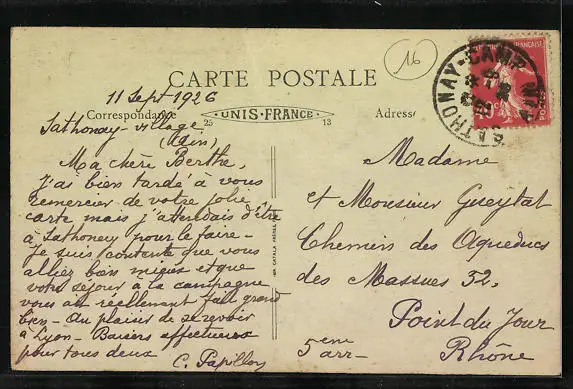 16
CARTE POSTALE
11 Sept 1926
Correspondance
UNIS-FRANCE
25
13
Adresse
SATHONAY-CAMP
AIN
Sathonay-village
(Ain)
Ma chère Berthe,
J'ai bien tardé à vous
remercier de votre jolie
carte mais j'attendais d'être
à Sathonay pour le faire –
Je suis contente que vous
alliez bien mieux et que
votre séjour à la campagne
vous ait réellement fait grand
bien – Au plaisir de se revoir
à Lyon – Baisers affectueux
pour tous deux
C. Papillon
Madame
et Monsieur Gueytat
Chemins des Aqueducs
des Massues 52,
Point du Jour
5eme
arr–
Rhône